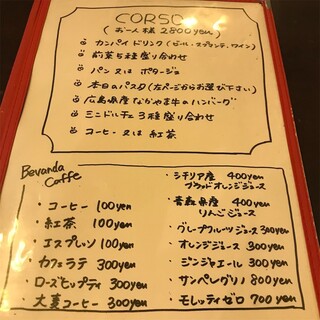 CORSO
(お一人様 2800yen)
カンパイドリンク (ビール・スプマンテ、ワイン)
前菜5種盛り合わせ
パン 又は ポタージュ
本日のパスタ (左ページからお選び下さい)
広島県産なかやま牛のハンバーグ
ミニドルチェ3種盛り合わせ
コーヒー 又は 紅茶
Bevanda
Caffe
・コーヒー 100yen
・紅茶 100yen
・エスプレッソ 100yen
・カフェラテ 300yen
・ローズヒップティ 300yen
・大麦コーヒー 300yen
・シチリア産 400yen
ブラッドオレンジジュース
・青森県産 400yen
りんごジュース
・グレープフルーツジュース 300yen
・オレンジジュース 300yen
・ジンジャエール 300yen
・サンペレグリノ 800yen
・モレッティゼロ 700yen